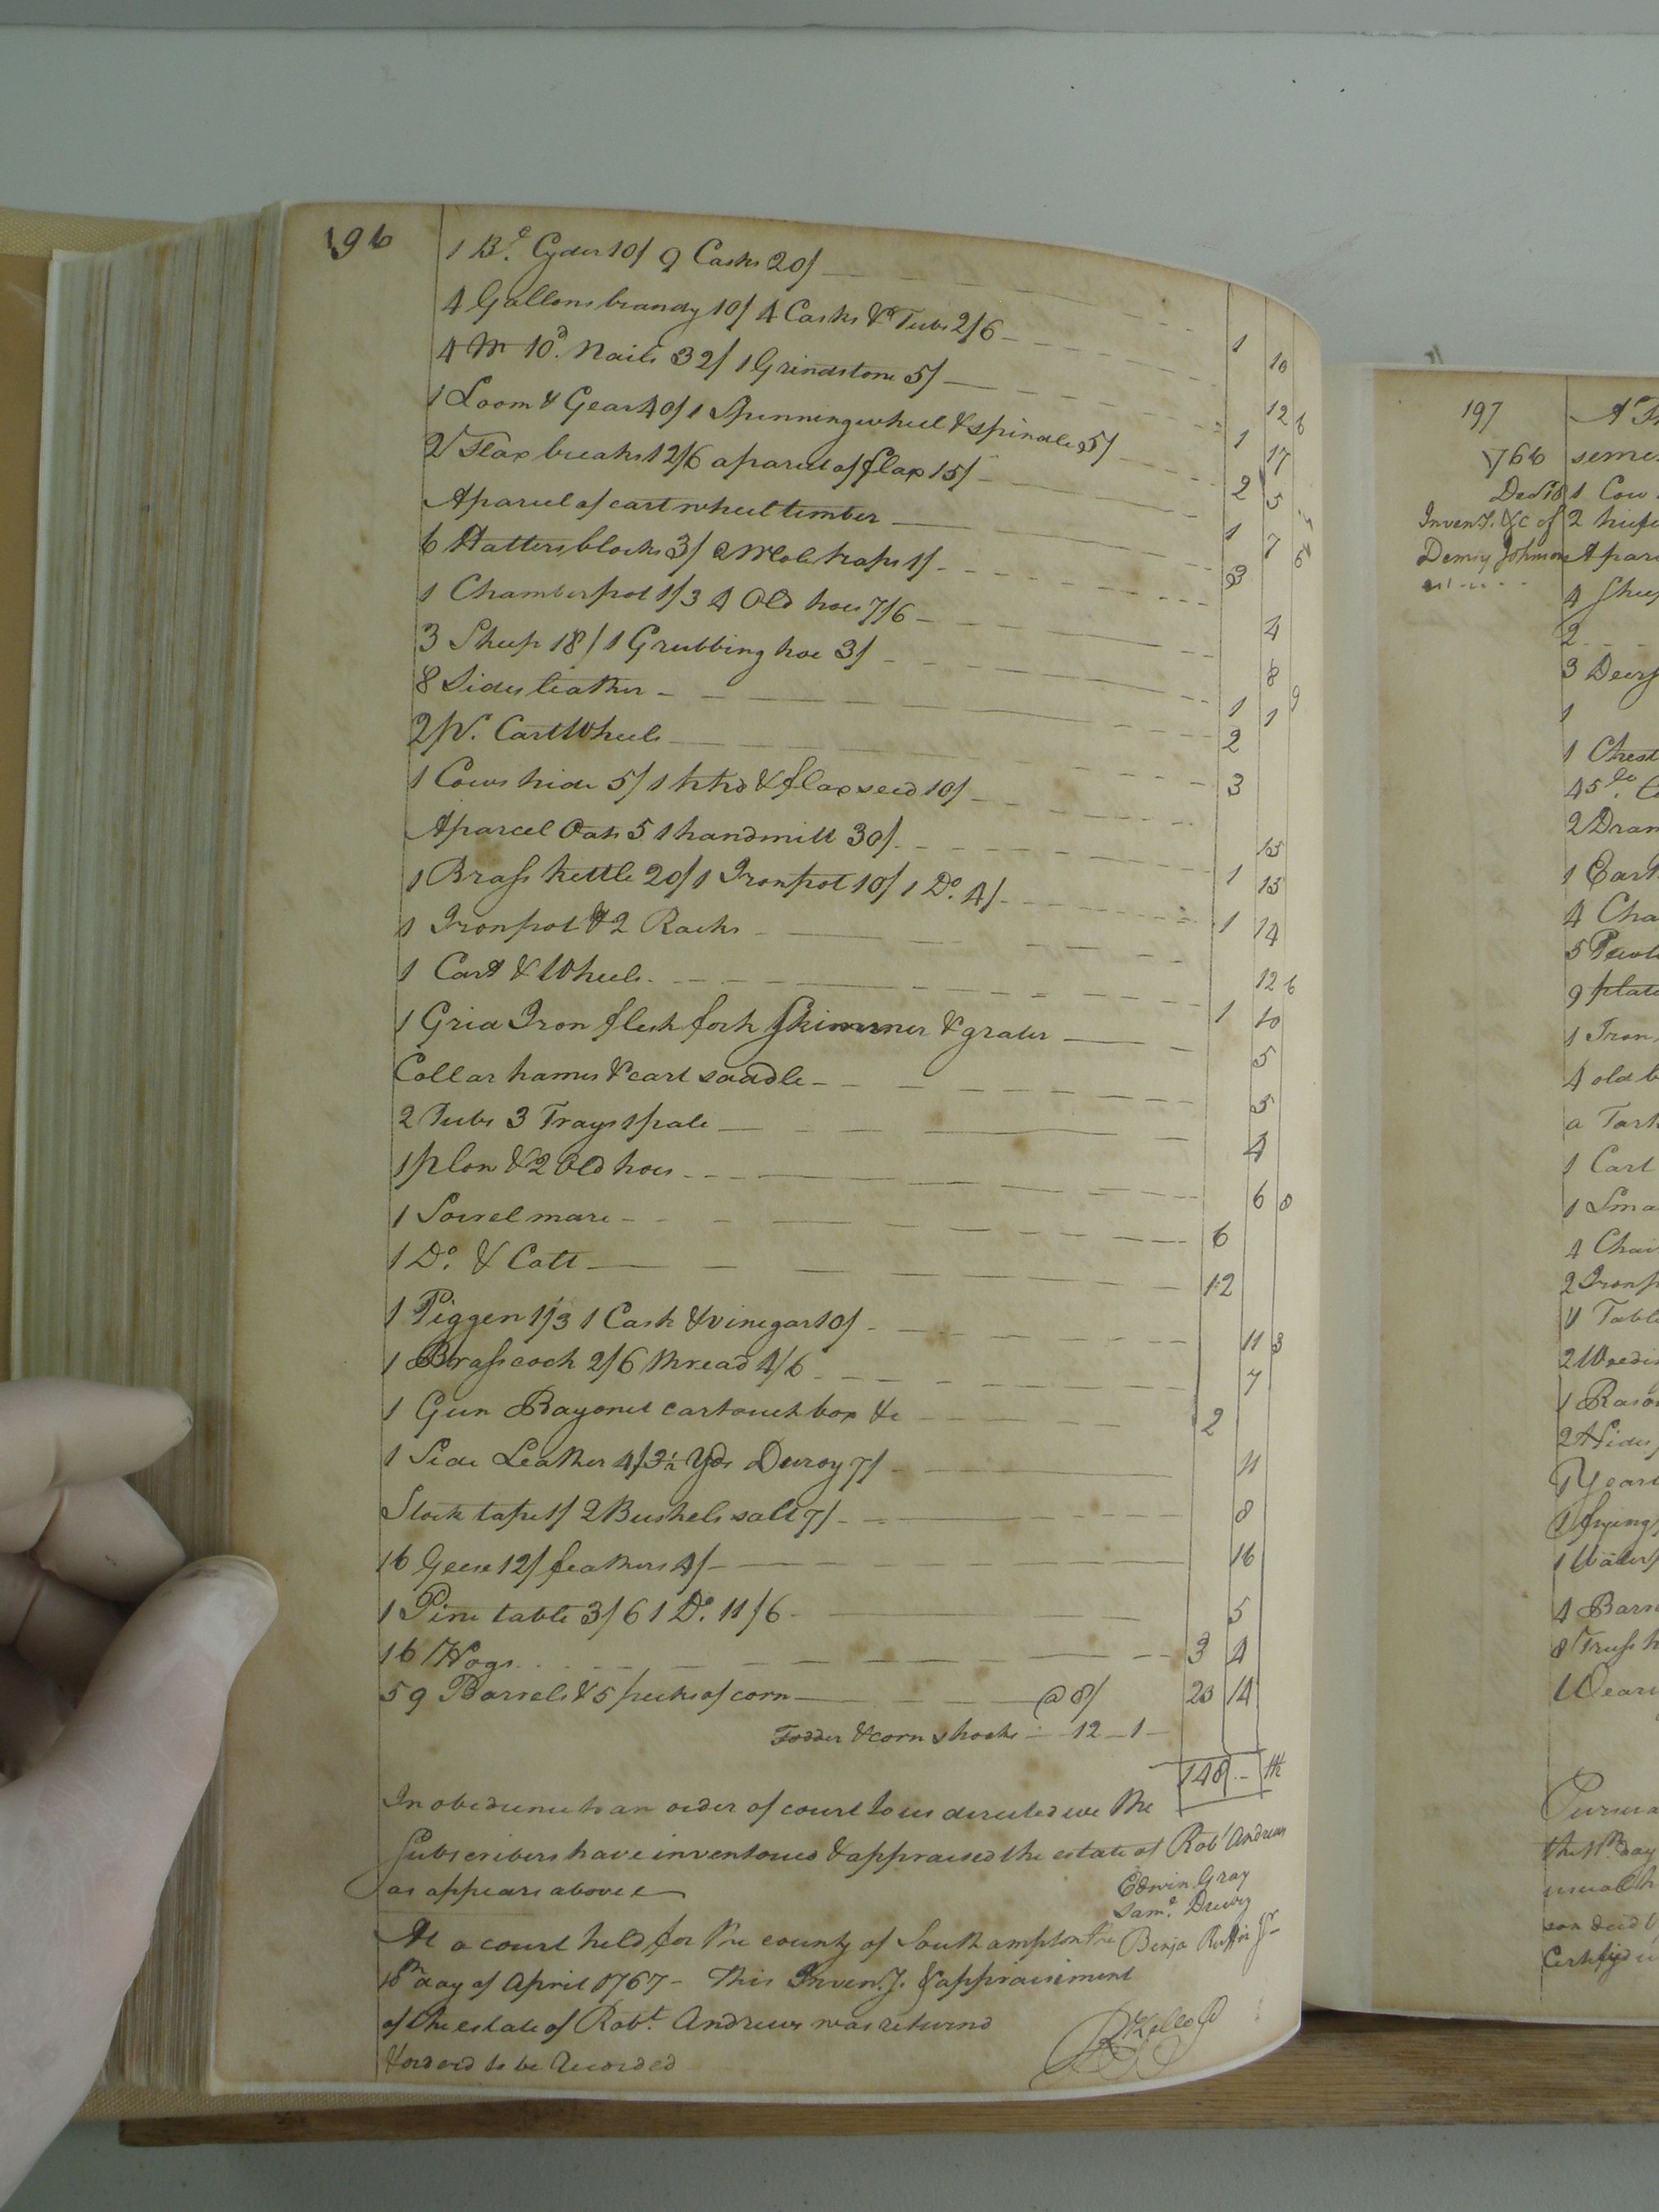 196
1 B.e Cyder 10/ 9 Casks 20/ 1 10
4 Gallons brandy 10/ 4 Casks & Tubs 2/6 12 6
4 M 10d. Nails 32/ 1 Grindstone 5/ 1 17
1 Loom & Gear 40/ 1 Spinning wheel & spindle 5/ 2 5
2 Flax breaks 12/6 a parcel of flax 15/ 1 7 6
A parcel of cart wheel timber 3
6 Hatters blocks 3/ 2 Mole traps 1/ 4
1 Chamberpot 1/3 4 Old hoes 7/6 8 9
3 Sheep 18/ 1 Grubbing hoe 3/ 1 1
8 Sides leather 2
2 pr. Cart Wheels 3
1 Cows hide 5/ 1 hhd & flax seed 10/ 15
A parcel Oats 5 1 handmill 30/ 1 15
1 Brass kettle 20/ 1 Iron pot 10/ 1 Do. 4/ 1 14
1 Iron pot & 2 Racks 12 6
1 Cart & Wheels 1 10
1 Grid Iron flesh fork Skimmer & grater 5
Collar hames & cart saddle 5
2 Tubs 3 Trays 1 pale 4
1 plow & 2 Old hoes 6 8
1 Sorrel mare 6
1 Do. & Colt 12
1 Piggen 1/3 1 Cask & vinegar 10/ 11 3
1 Brass cock 2/6 thread 4/6 7
1 Gun Bayonet cartouch box &c 2
1 Side Leather 4/ 3½ Yds Duroy 7/ 11
Stock tape 1/ 2 Bushels salt 7/ 8
16 Geese 12/ feathers 4/ 16
1 Pine table 3/6 1 Do. 11/6 5
16 Hogs 3 4
59 Barrels & 5 pecks of corn @ 8/ 23 14
Fodder & corn shocks 12 1
148
In obedience to an order of court to us directed we the
Subscribers have inventoried & appraised the estate of Robt Andrews
as appears above
Edwin Gray
Saml. Drury
Benja Ruffin Jr
At a court held for the county of Southampton the
day of April 1767 - This Inven.y. & appraisement
of the estate of Robt. Andrews was returnd
& orderd to be Recorded
R Kello
197
1766
Inven.y. &c of
Demcy Johnson
1 Cow
2
4 Sheep
2
3
1
1 Chest
45 lb.
2
1
4
5
9
1 Iron
4 old
a
1 Cart
1
4
2
4
2
1
2
1
4
8
the
usual
Certifyd